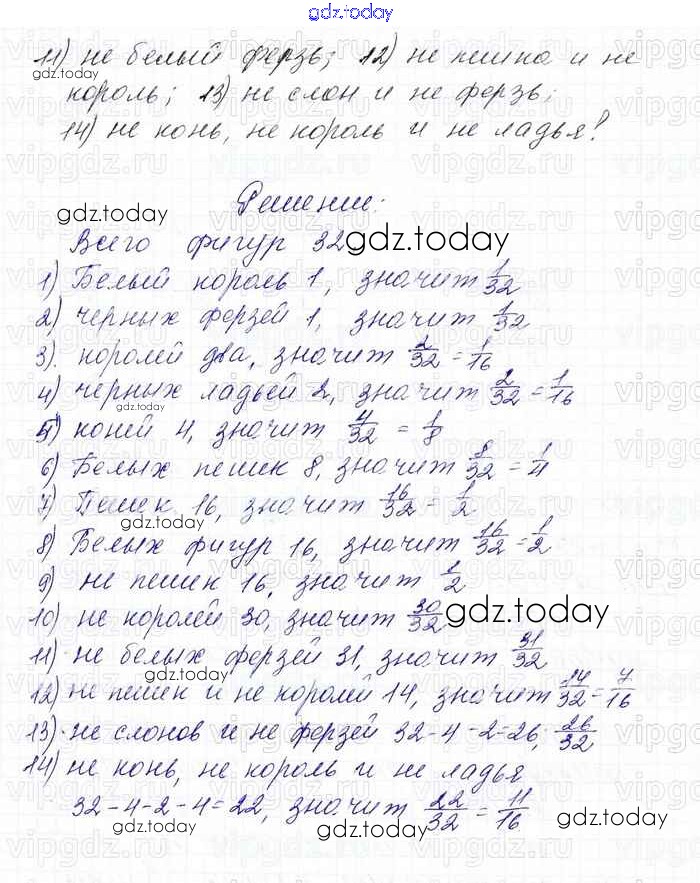 gdz.today
11) не белый ферзь; 12) не пешка и не
король; 13) не слон и не ферзь;
14) не конь, не король и не ладья?
Решение:
Всего фигур 32
1) Белый король 1, значит 1/32
2) черных ферзей 1, значит 1/32
3). королей два, значит 2/32 = 1/16
4) черных ладьей 2, значит 2/32 = 1/16
5) коней 4, значит 4/32 = 1/8
6) Белых пешек 8, значит 8/32 = 1/4
7) Пешек 16, значит 16/32 = 1/2
8) Белых фигур 16, значит 16/32 = 1/2
9) не пешек 16, значит 1/2
10) не королей 30, значит 30/32
11) не белых ферзей 31, значит 31/32
12) не пешек и не королей 14, значит 14/32 = 7/16
13) не слонов и не ферзей 32-4-2=26, 26/32
14) не конь, не король и не ладья
32-4-2-4=22, значит 22/32 = 11/16